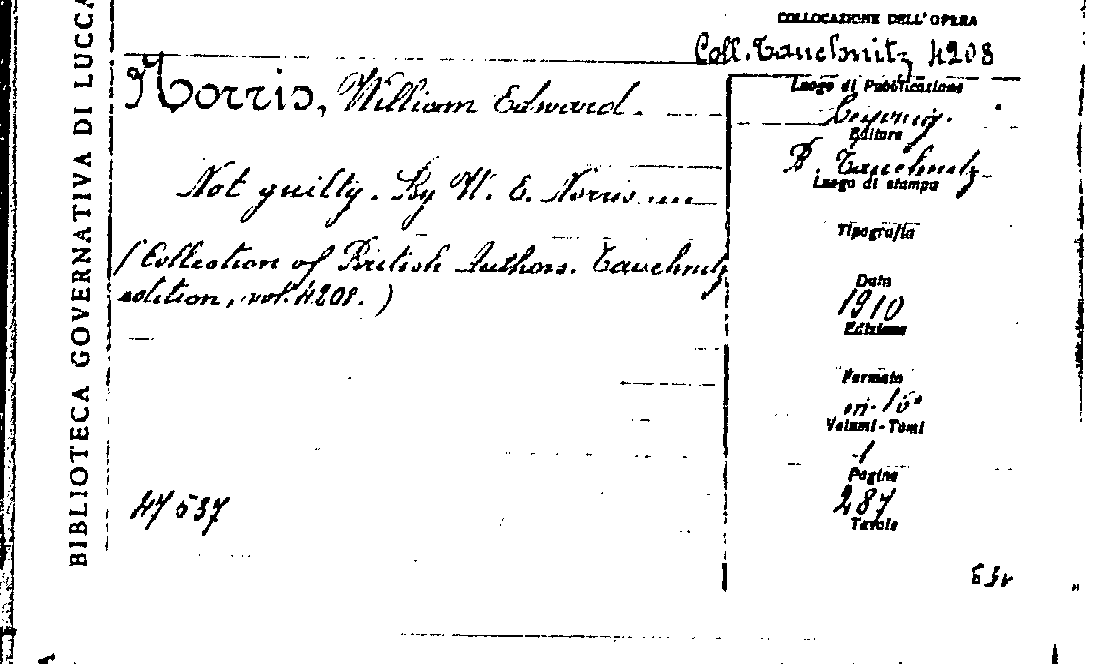 BIBLIOTECA GOVERNATIVA DI LUCCA
COLLOCAZIONE DELL'OPERA
Coll. Tauchnitz 4208
Norris, William Edward.
Not guilty. By W. E. Norris ...
(Collection of British Authors. Tauchnitz
edition, vol. 4208.)
47537
Luogo di Pubblicazione
Leipzig.
Editore
B. Tauchnitz
Luogo di stampa
Tipografia
Data
1910
Edizione
Formato
in-16°
Volumi-Tomi
1
Pagine
287
Tavole